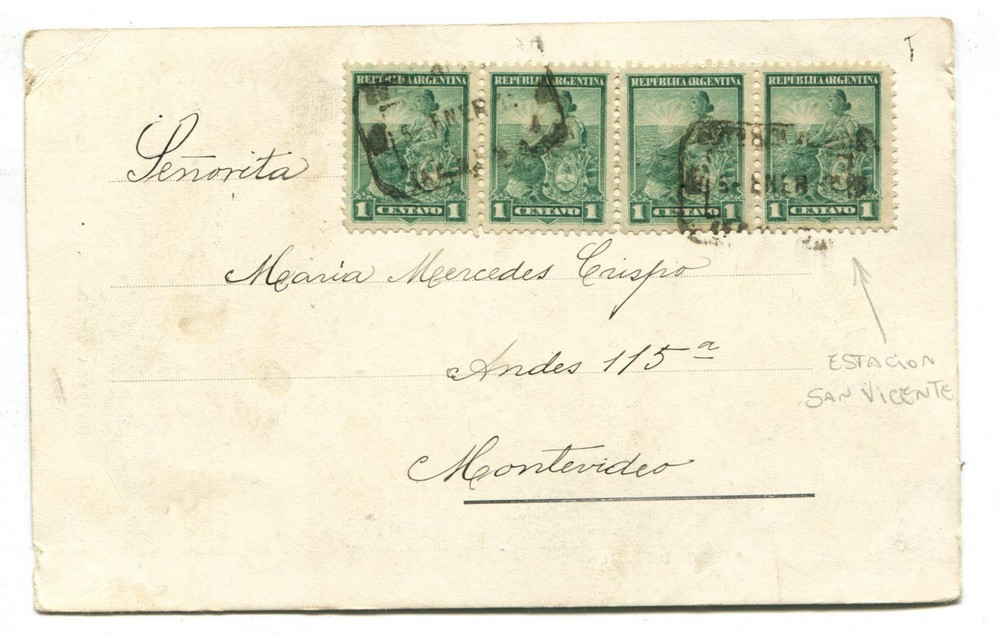 T
REPUBLICA ARGENTINA REPUBLICA ARGENTINA REPUBLICA ARGENTINA REPUBLICA ARGENTINA
15 ENER
ENER
1 CENTAVO 1 1 CENTAVO 1 1 CENTAVO 1 1 CENTAVO 1
Señorita
Maria Mercedes Crispo
Andes 115ª
Montevideo
ESTACION
SAN VICENTE